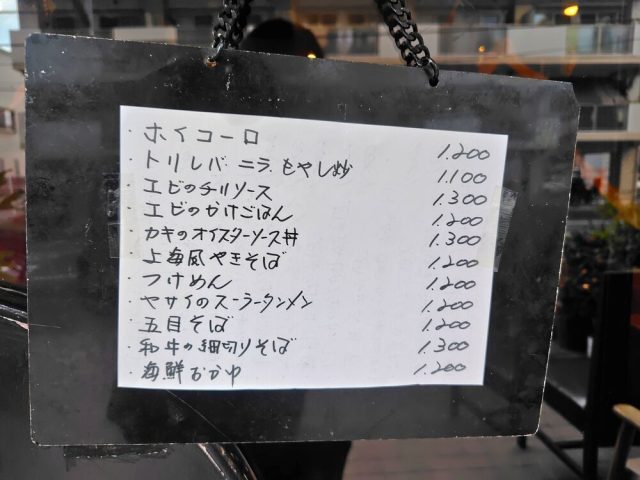 ・ホイコーロ 1.200
・トリレバーニラ.もやし炒 1.100
・エビのチリソース 1.300
・エビのかけごはん 1.200
・カキのオイスターソース丼 1.300
・上海風やきそば 1.200
・つけめん 1.200
・ヤサイのスーラータンメン 1.200
・五目そば 1.200
・和牛の細切りそば 1.300
・海鮮おかゆ 1.200